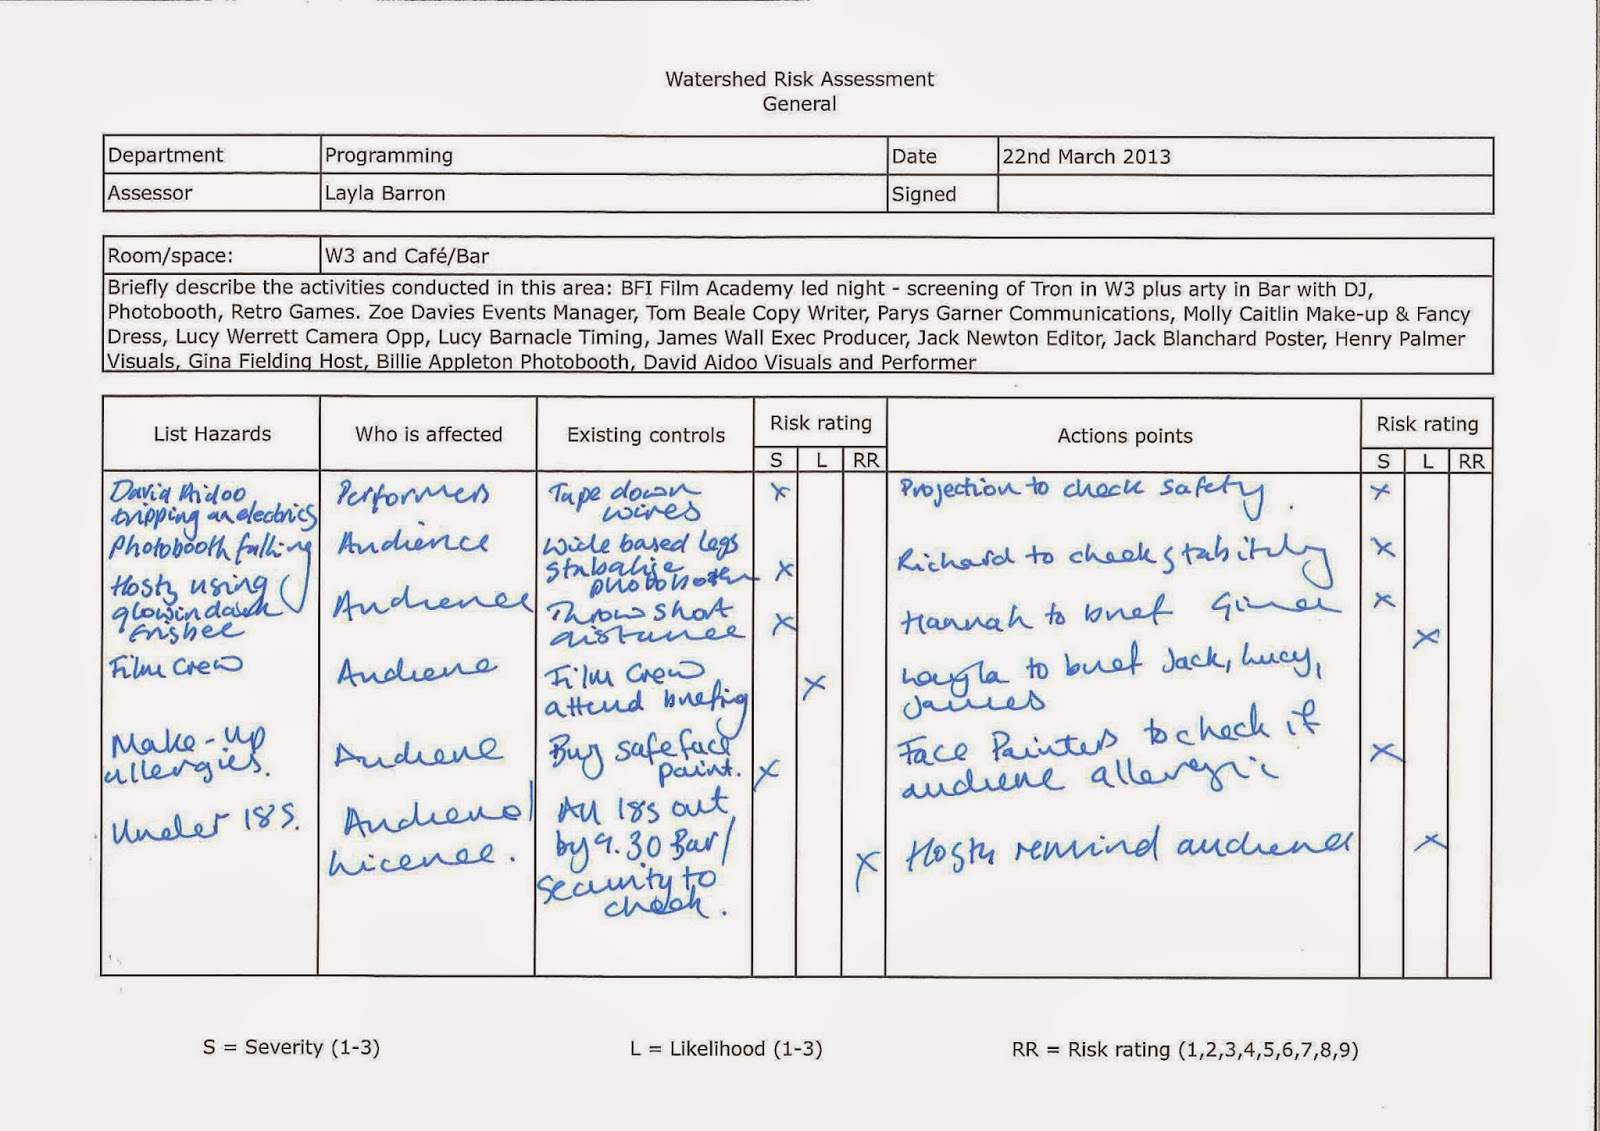 Watershed Risk Assessment
General
Department Programming Date 22nd March 2013
Assessor Layla Barron Signed
Room/space: W3 and Café/Bar
Briefly describe the activities conducted in this area: BFI Film Academy led night - screening of Tron in W3 plus arty in Bar with DJ,
Photobooth, Retro Games. Zoe Davies Events Manager, Tom Beale Copy Writer, Parys Garner Communications, Molly Caitlin Make-up & Fancy
Dress, Lucy Werrett Camera Opp, Lucy Barnacle Timing, James Wall Exec Producer, Jack Newton Editor, Jack Blanchard Poster, Henry Palmer
Visuals, Gina Fielding Host, Billie Appleton Photobooth, David Aidoo Visuals and Performer
List Hazards Who is affected Existing controls Risk rating Actions points Risk rating
S L RR S L RR
David Aidoo Performers Tape down x Projection to check safety. x
tripping on electrics wires
Photobooth falling Audience Wide based legs Richard to check stability x
stabalise x
photobooth
Hosts using Audience Throw short x Hannah to brief Gina x
glow in dark distance x
frisbee
Film Crew Audience Film Crew x Layla to brief Jack, Lucy,
attend briefing James
Make-up Audience Buy safe face x Face Painters to check if x
allergies. paint. audience allergic
Under 18s. Audience/ All 18s out Hosts remind audience x
Licence. by 9.30 Bar/ x
Security to
check.
S = Severity (1-3) L = Likelihood (1-3) RR = Risk rating (1,2,3,4,5,6,7,8,9)